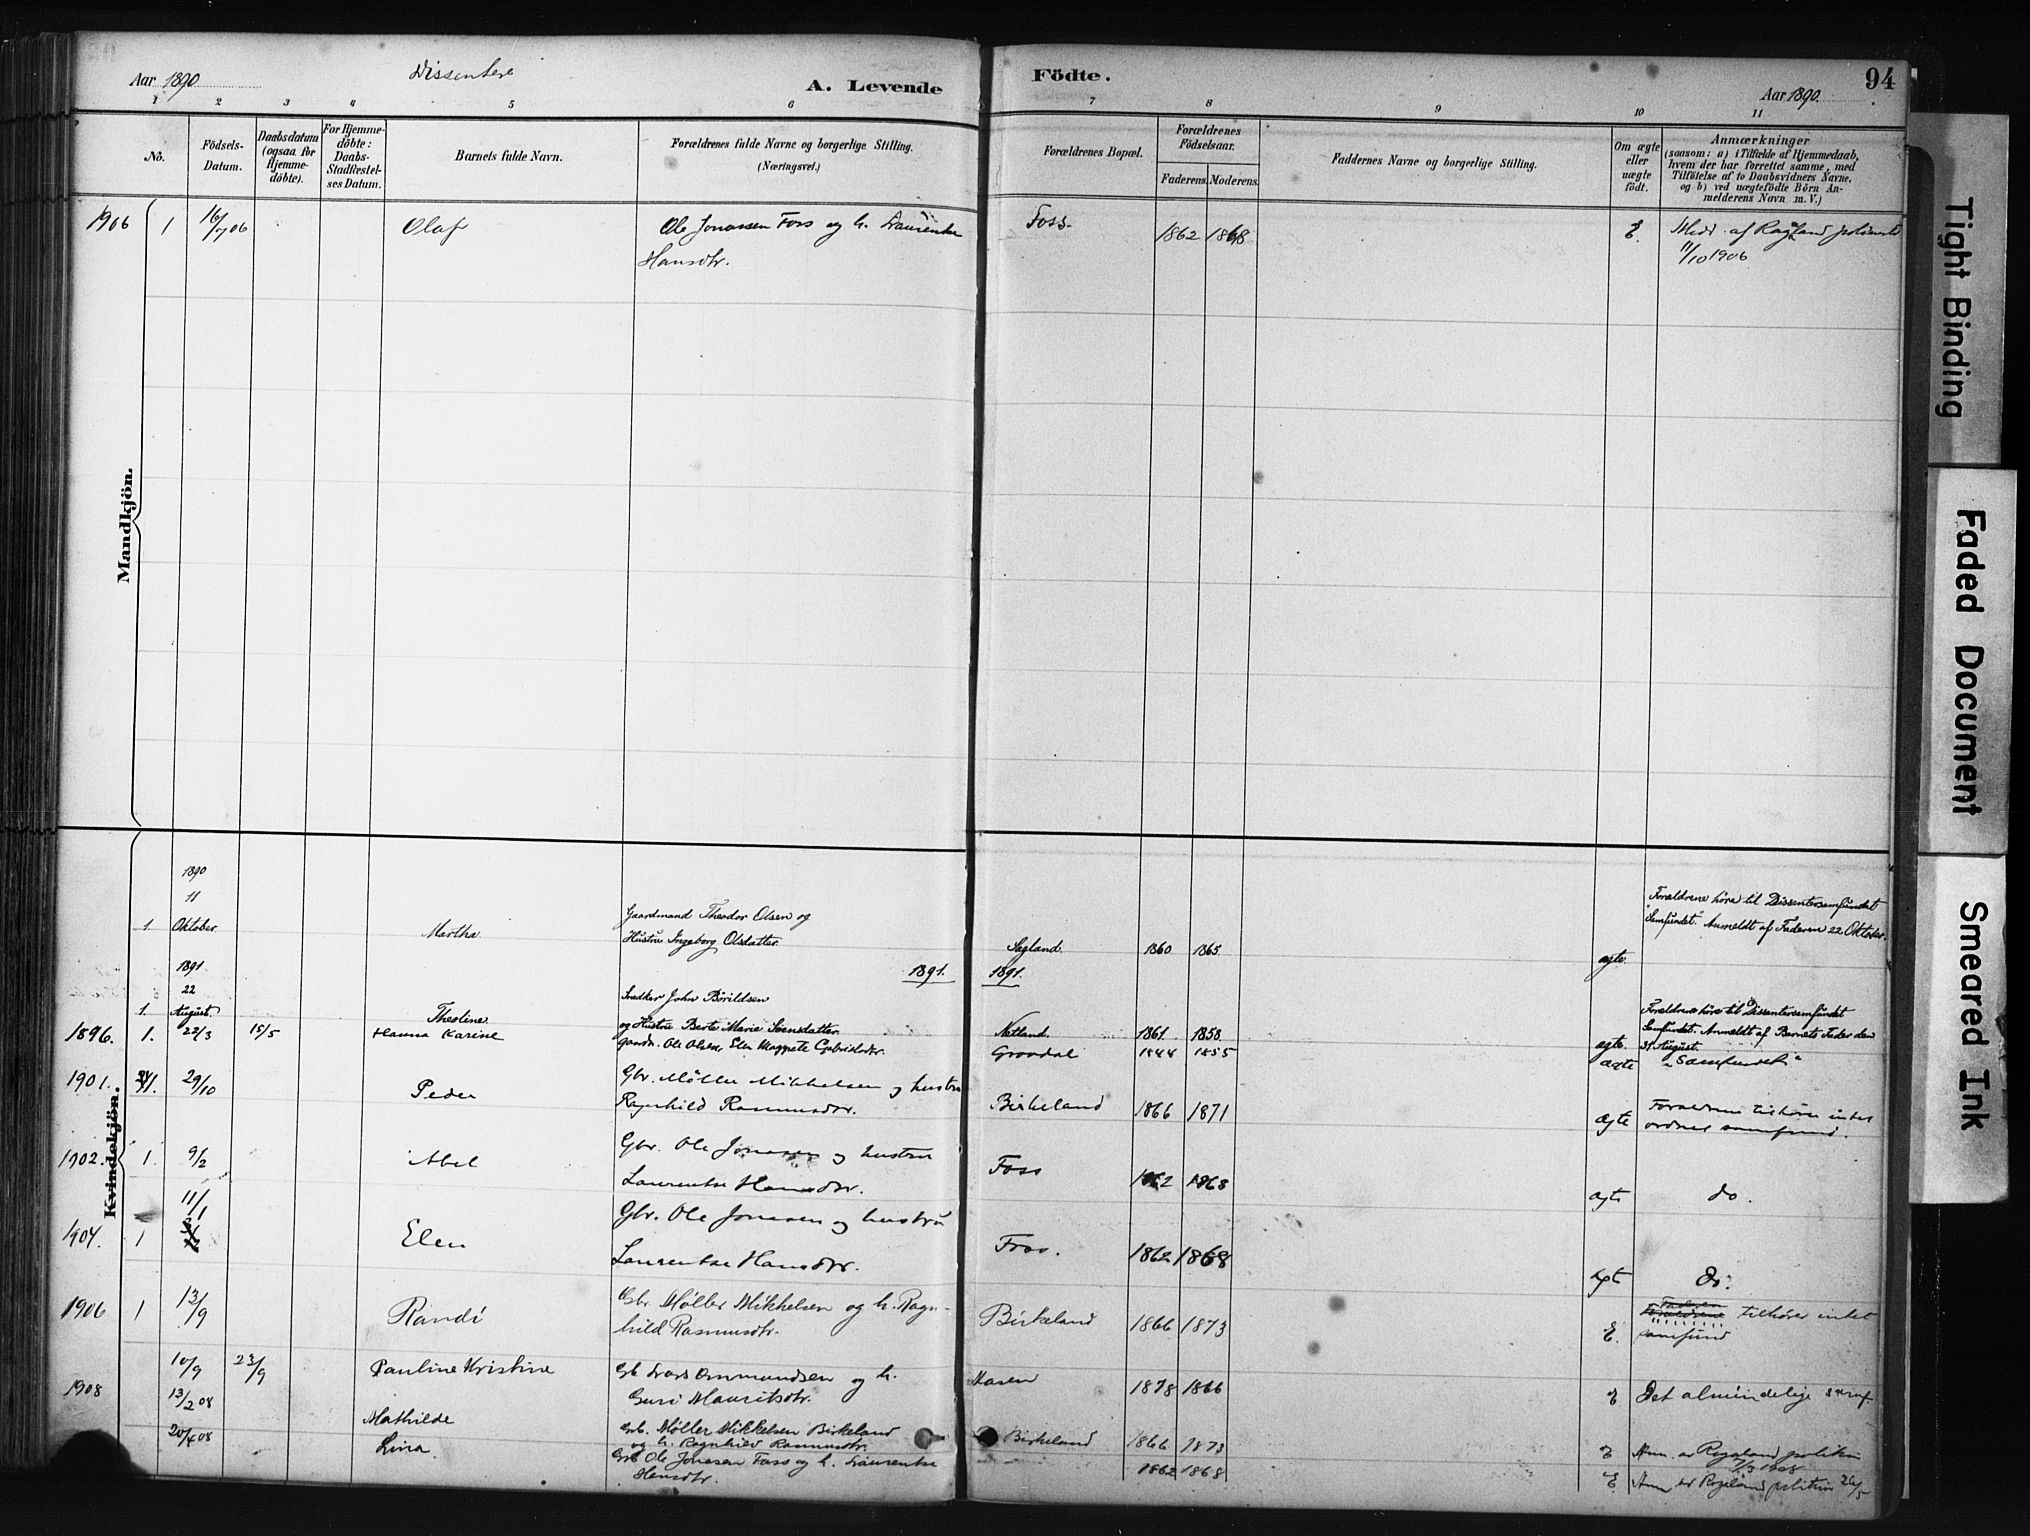 Aar 1890
Dissentere
A. Levende
Födte.
Aar 1890
94
1 2 3 4 5 6 7 8 9 10 11
No.
Födsels-
Datum.
Daabsdatum
(ogsaa for
Hjemme-
döbte).
For Hjemme-
döbte:
Daabs-
Stadfæstel-
ses Datum.
Barnets fulde Navn.
Forældrenes fulde Navne og borgerlige Stilling.
(Næringsvei.)
Forældrenes Bopæl.
Forældrenes
Födselsaar.
Faderens. Moderens.
Faddernes Navne og borgerlige Stilling.
Om ægte
eller
uægte
födt.
Anmærkninger
(saasom: a) i Tilfælde af Hjemmedaab,
hvem der har forrettet samme, med
Tilföielse af to Daabsvidners Navne,
og b) ved uægtefödte Börn An-
melderens Navn m. V.)
Mandkjön.
1906 1 16/7 06 Olaf Ole Jonassen Foss og h. Laurentse
Hansdtr.
Foss. 1862 1868 E. Medd. af Rogaland politimst
11/10 1906
Kvindekjön.
1890
11
1. Oktober Martha Gaardmand Theodor Olsen og
Hustru Ingeborg Olsdatter.
Sagland. 1860 1865. ægte.
Forældrene höre til Dissentersamfundet
"Samfundet". Anmeldt af Faderen 22 Oktober.
1891. 1891.
1891
22
1. August Thestine Snedker John Börildsen
og Hustru Berte Marie Svensdatter.
Netland. 1861. 1858. ægte.
Forældrene höre til Dissentersamfundet
Samfundet. Anmeldt af Barnets Fader den
31 August
1896. 1. 22/3 15/5 Hanna Karine gaardm. Ole Olsen, Elen Magrete Gabrielsdtr.
Groadal 1844 1855 ægte "Samfundet"
1901. 1. 29/10 Peder Gbr. Møller Mikkelsen og hustru
Ragnhild Rasmusdtr.
Birkeland 1866 1871 ægte Forældrene tilhöre intet
ordnet samfund.
1902. 1. 9/2 Abel Gbr. Ole Jonassen og hustru
Laurentse Hansdtr.
Foss 1862 1868 ægte do.
1904. 1 11/1 Elen Gbr. Ole Jonassen og hustru
Laurentse Hansdtr.
Foss. 1862 1868 ægte do.
1906 1 13/9 Randi Gbr Møller Mikkelsen og h. Ragn-
hild Rasmusdtr.
Birkeland 1866 1873 E. Faderen
Forældrene tilhører intet
samfund
10/9 23/9 Pauline Kristine Gb Lars Ommundsen og h.
Guri Mauritsdtr.
Aasen 1878 1866 E Det almindelige samf.
1908 13/2 08 Mathilde Gb. Møller Mikkelsen Birkeland
og h. Ragnhild Rasmusdtr.
Birkeland 1866 1873 E Anm. av Rogaland politim
1908
20/4 08 Lina Gb Ole Jonassen Foss og h. Laurentse
Hansdtr.
1862 1868 E Anm av Rogaland politim 26/5
Tight Binding
Faded Document
Smeared Ink